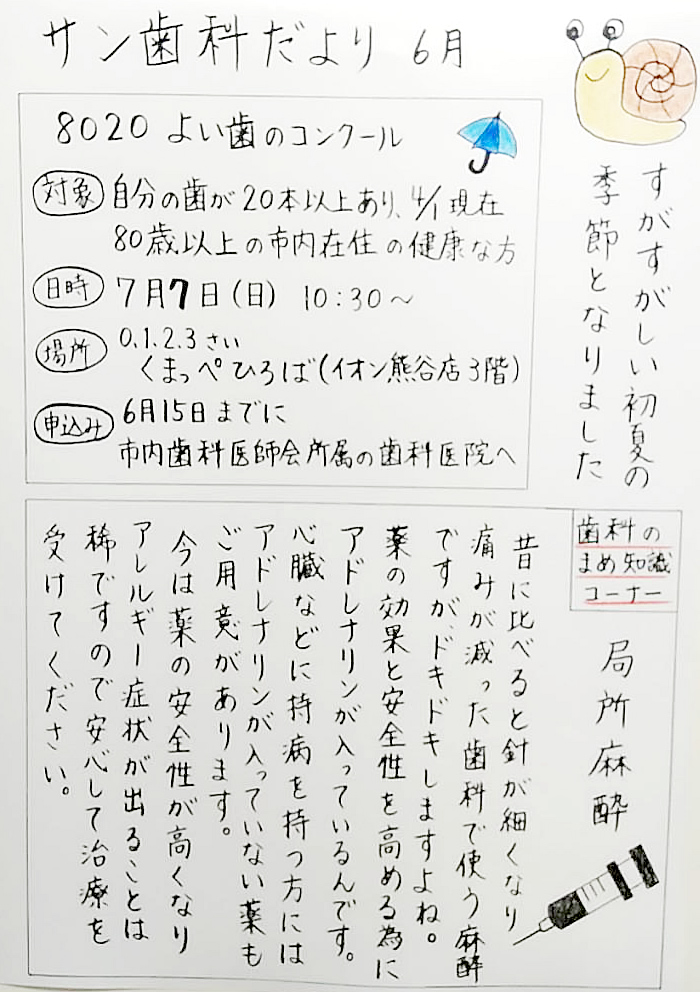 サン歯科だより 6月
すがすがしい初夏の
季節となりました
8020 よい歯のコンクール
対象 自分の歯が20本以上あり、4/1現在
80歳以上の市内在住の健康な方
日時 7月7日(日) 10:30〜
場所 0.1.2.3さい
くまっぺひろば(イオン熊谷店3階)
申込み 6月15日までに
市内歯科医師会所属の歯科医院へ
歯科の
まめ知識
コーナー
局所麻酔
昔に比べると針が細くなり
痛みが減った歯科で使う麻酔
ですが、ドキドキしますよね。
薬の効果と安全性を高める為に
アドレナリンが入っているんです。
心臓などに持病を持つ方には
アドレナリンが入っていない薬も
ご用意があります。
今は薬の安全性が高くなり
アレルギー症状が出ることは
稀ですので安心して治療を
受けてください。